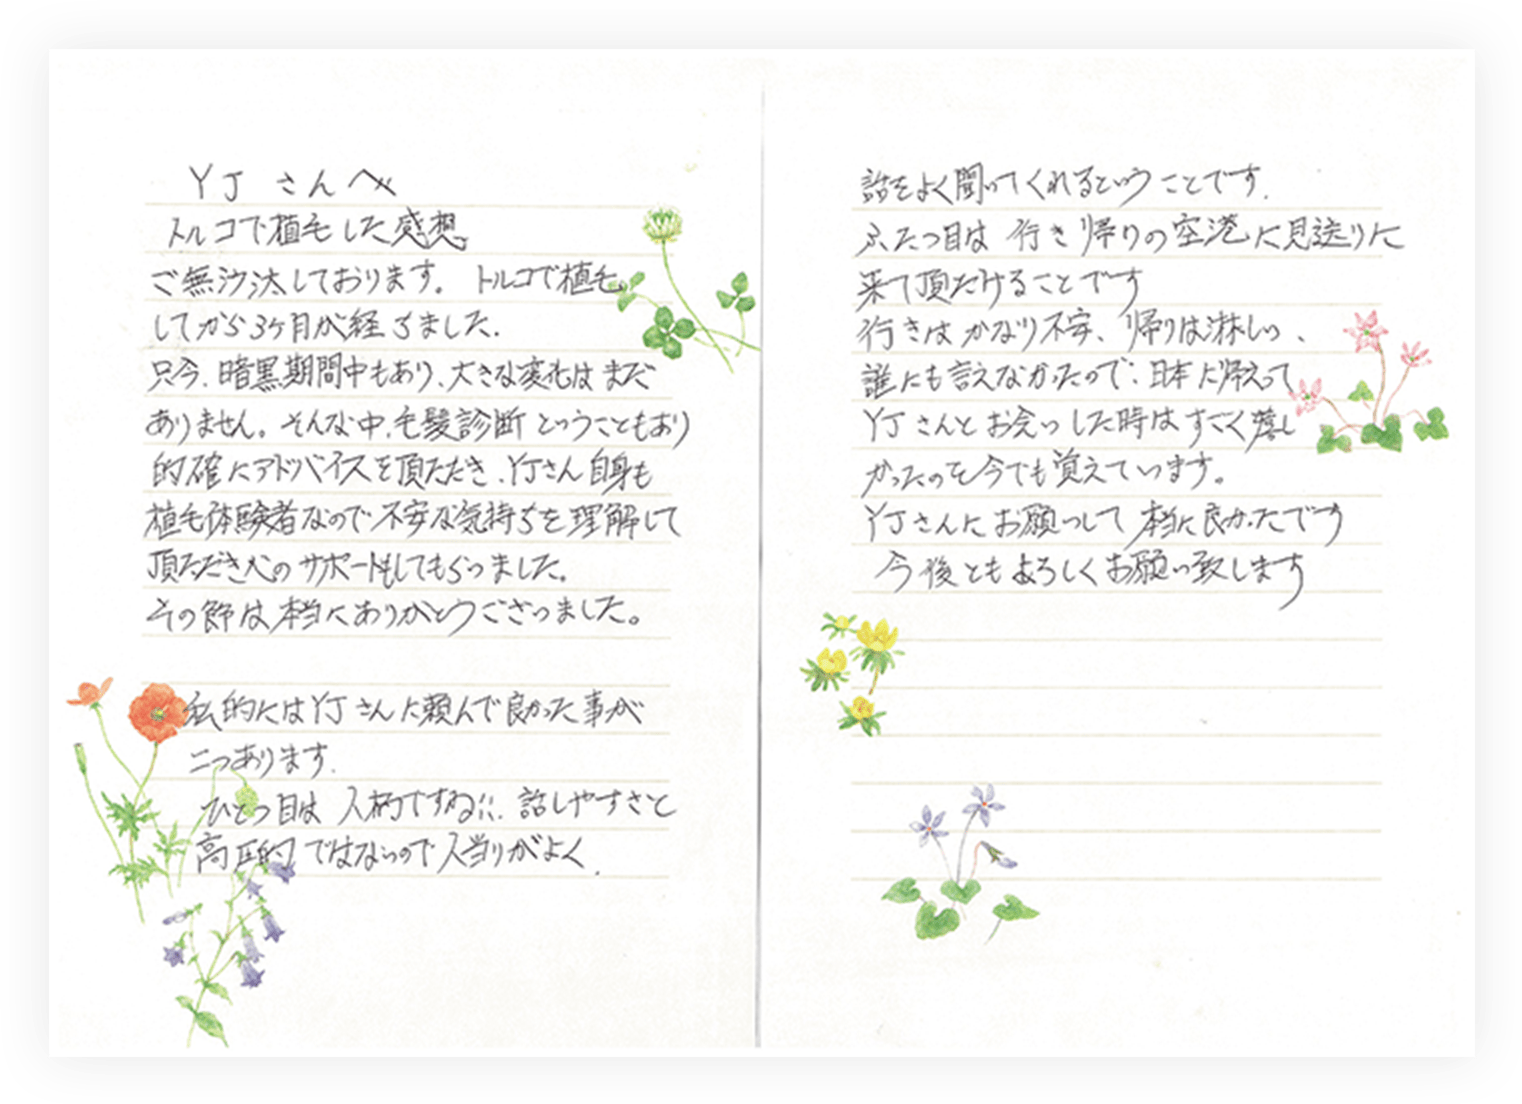 YJ さんへ
トルコで植毛した感想。
ご無沙汰しております。 トルコで植毛
してから3ヶ月が経ちました.
只今、暗黒期間中もあり、大きな変化はまだ
ありません。そんな中、毛髪診断ということもあり
的確にアドバイスを頂ただき、YJさん自身も
植毛体験者なので不安な気持ちを理解して
頂ただき心のサポートもしてもらいました。
その節は本当にありがとうございました。
私的にはYJさんに頼んで良かった事が
二つあります.
ひとつ目は 人柄ですね!!. 話しやすさと
高圧的ではないので人当りがよく.
話をよく聞いてくれるということです.
ふたつ目は 行き帰りの空港に見送りに
来て頂だけることです
行きは かなり不安、帰りは淋しい、
誰にも言えなかったので、日本に帰えって
YJ さんとお会いした時は すごく嬉し
かったのを今でも覚えています。
YJさんにお願いして 本当に良かったです
今後ともよろしくお願い致します